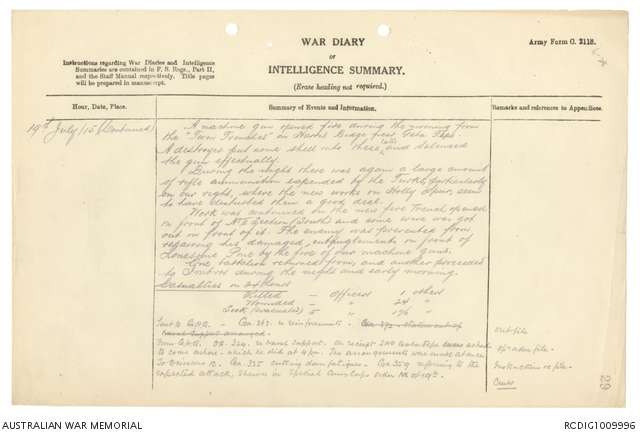 WAR DIARY
Army Form C. 2118.
or
Instructions regarding War Diaries and Intelligence
Summaries are contained in F. S. Regs., Part II,
and the Staff Manual respectively. Title pages
will be prepared in manuscript.
INTELLIGENCE SUMMARY.
(Erase heading not required.)
Hour, Date, Place.
Summary of Events and Information.
Remarks and references to Appendices.
19th July/15 (Continued)
A machine gun opened fire during the morning from
the "Turn Trenches" on Ridge
A destroyer put some shell into these and silenced
the gun effectually.
During the night there was again a large amount
of rifle ammunition expended by the Turks, particularly
on our right, where the new works on Holly Spur, seem
to have disturbed them a good deal.
Work was continued in the new fire trench opened
in front of No 2 Section (South) and some wire was got
out in front of it. The enemy was prevented from
repairing his damaged entanglements in front of
Lonesome Pine by the fire of our machine guns.
One battalion returned from, and another proceeded
to Imbros during the night and early morning.
Casualties in 24 hours
Killed - Officers 1 others
Wounded - " 24 "
Sick (evacuated) 5 " 196 "
Sent to G.H.Q. - Ga. 363. re reinforcements.
naval support arranged
From G.H.Q. 324. re naval support. On receipt asked
to come ashore - which he did at 4 pm. The arrangements were made
To Divisions Ga. 335 cutting down fatigues. Ga. 359 referring to the
expected attack, shewn in Special Corps order of 19th.
out file.
file.
Instructions re file.
Orders
29
AUSTRALIAN WAR MEMORIAL
RCDIG1009996